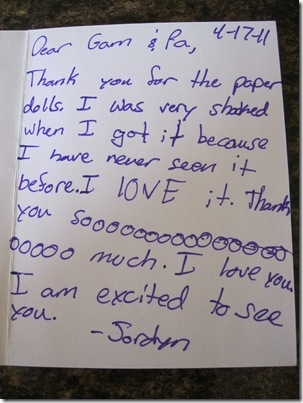 Dear Gam & Pa, 4-17-11
Thank you for the paper
dolls. I was very shoked
when I got it because
I have never seen it
before. I LOVE it. Thank
you soooooooooooooooo
ooooo much. I love you.
I am excited to see
you.
-Jordyn